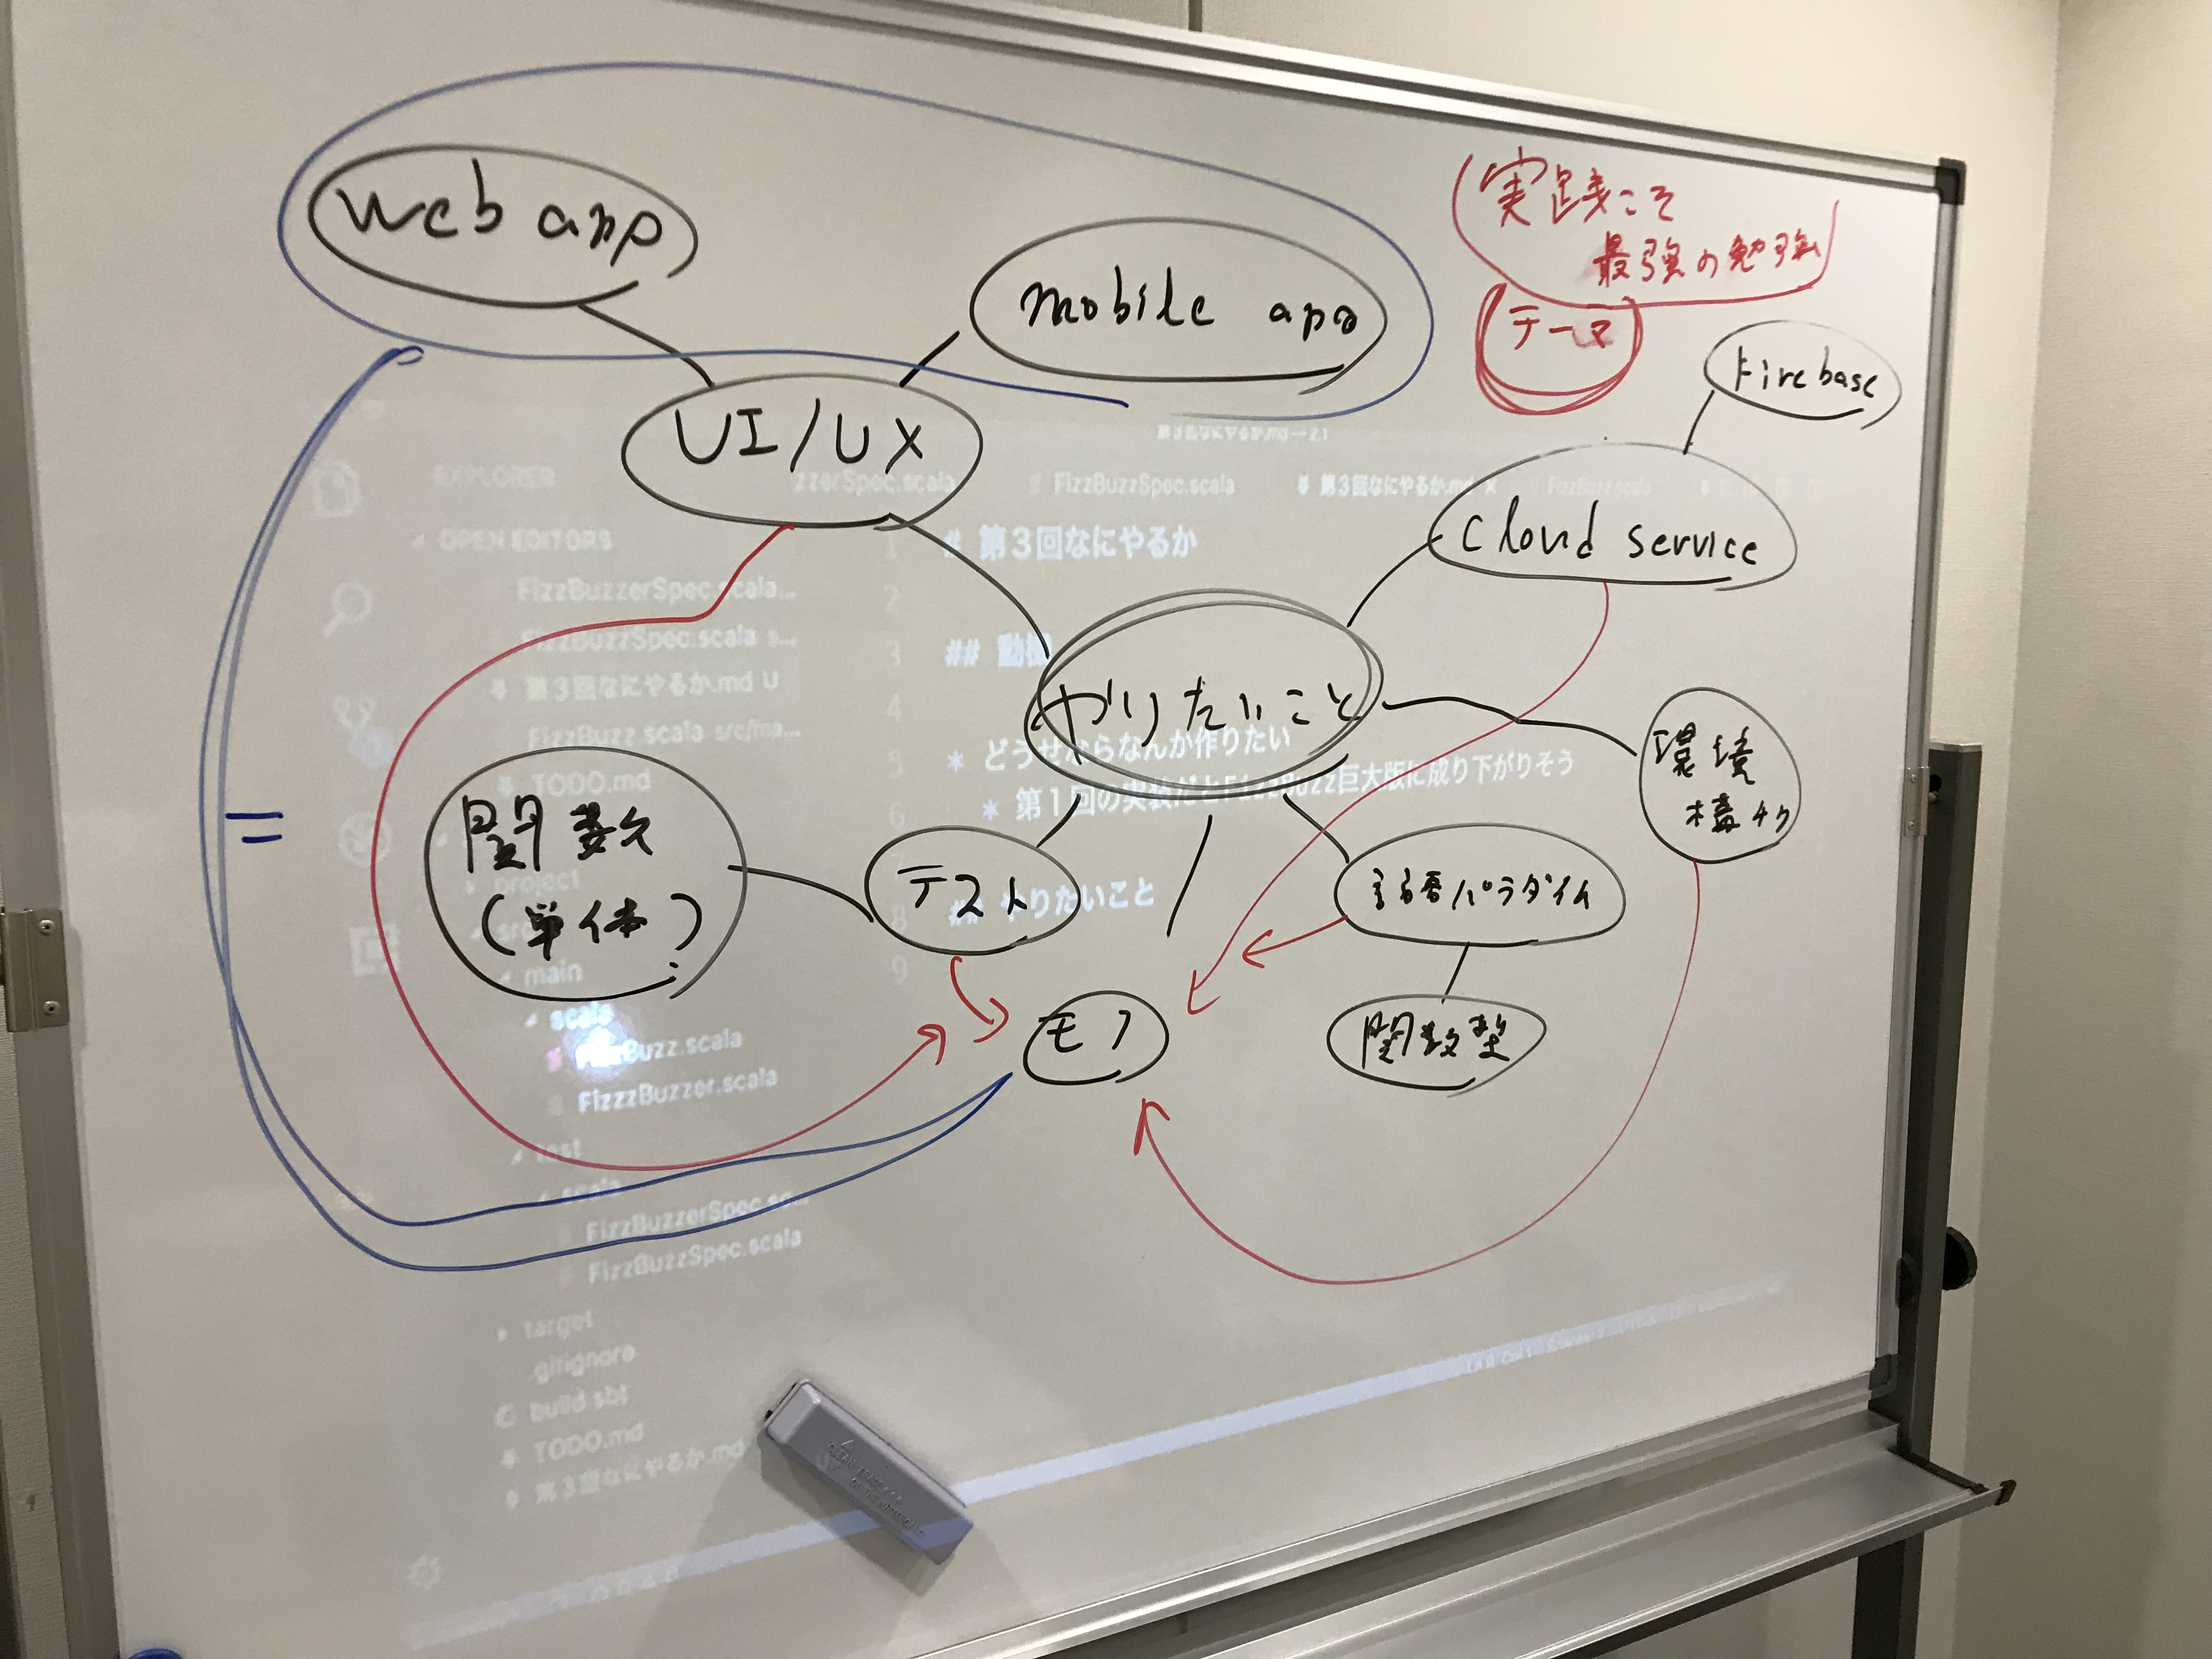 web app
mobile app
実践こそ
最強の勉強
テーマ
Firebase
UI/UX
cloud service
やりたいこと
環境
構チク
関数
(単体)
テスト
言語パラダイム
モノ
関数型
=
EXPLORER
OPEN EDITORS
FizzBuzzerSpec.scala...
FizzBuzzSpec.scala s...
第3回なにやるか.md U
FizzBuzz.scala src/ma...
TODO.md
project
src
main
scala
FizzBuzz.scala
FizzzBuzzer.scala
test
scala
FizzBuzzerSpec.sc...
FizzBuzzSpec.scala
target
.gitignore
build.sbt
TODO.md
第3回なにやるか.md
第3回なにやるか.md
zzerSpec.scala
FizzBuzzSpec.scala
第3回なにやるか.md
FizzBuzz.scala
1 # 第3回なにやるか
2
3 ## 動機
4
5 * どうせならなんか作りたい
6 * 第1回の実装だとFizzBuzz巨大版に成り下がりそう
8 ## やりたいこと
9